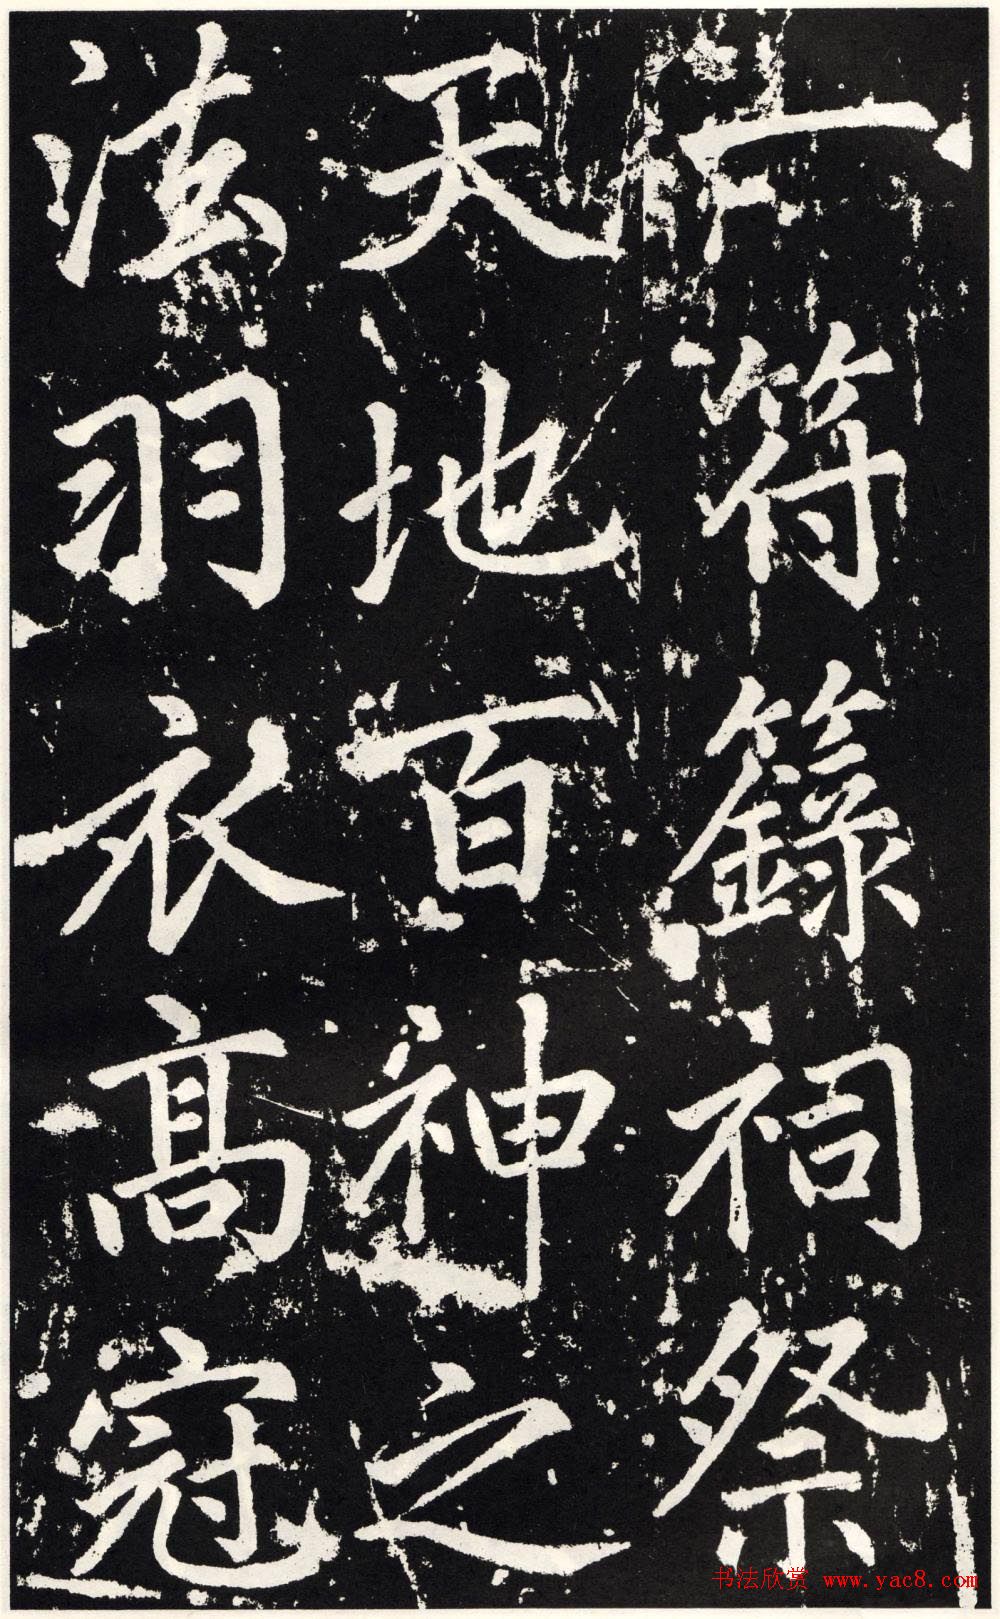 符籙祠祭
天地百神之
法羽衣高冠
书法欣赏 www.yac8.com